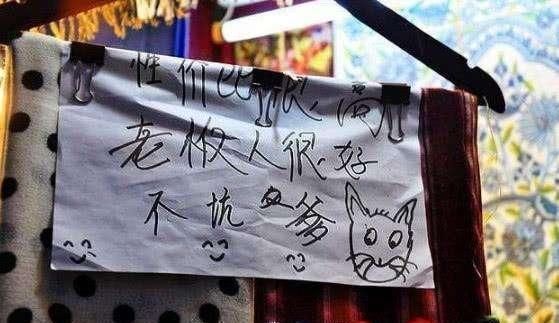 性价比很高
老板人很好
不坑爹